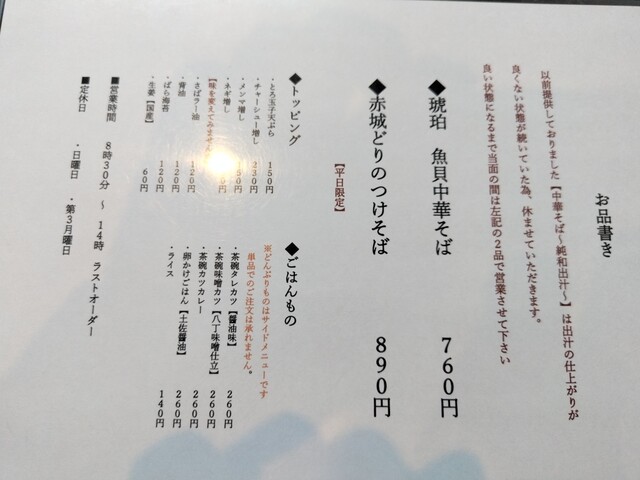 お品書き
以前提供しておりました【中華そば～純和出汁～】は出汁の仕上がりが
良くない状態が続いていた為、休ませていただきます。
良い状態になるまで当面の間は左記の2品で営業させて下さい
◆琥珀　魚貝中華そば　760円
◆赤城どりのつけそば　890円
【平日限定】
◆トッピング
・とろ玉子天ぷら　150円
・チャーシュー増し　230円
・メンマ増し
・ネギ増し
【味を変えてみませ
・さばラー油　120円
・背油　120円
・ばら海苔　120円
・生姜【国産】　60円
◆ごはんもの
※どんぶりものはサイドメニューです
単品でのご注文は承れません。
・茶碗タレカツ【醤油味】　260円
・茶碗味噌カツ【八丁味噌仕立】　260円
・茶碗カツカレー　260円
・卵かけごはん【土佐醤油】　260円
・ライス　140円
■営業時間　8時30分　～　14時　ラストオーダー
■定休日　・日曜日　・第3月曜日